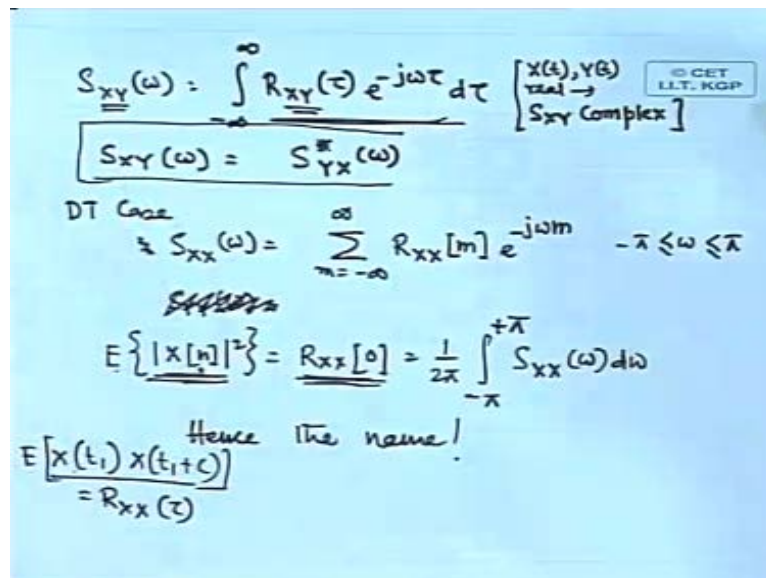 S_XY(ω) = ∫_{-∞}^{∞} R_XY(τ) e^{-jωτ} dτ [X(t), Y(t) real → S_XY Complex]
© CET
I.I.T. KGP
S_XY(ω) = S*_YX(ω)
DT Case
S_XX(ω) = ∑_{m=-∞}^{∞} R_XX[m] e^{-jωm} -π ≤ ω ≤ π
E{|X[n]|²} = R_XX[0] = 1/2π ∫_{-π}^{+π} S_XX(ω) dω
Hence the name!
E[X(t₁) X(t₁+τ)]
= R_XX(τ)